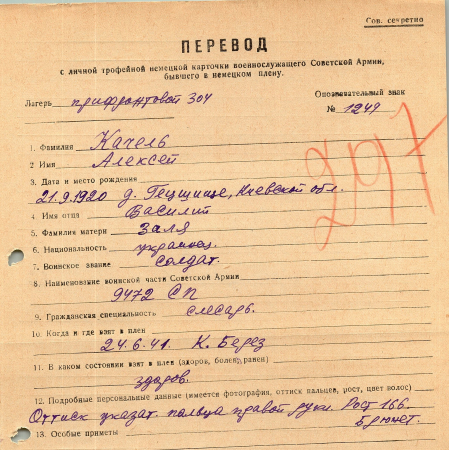 Сов. секретно
ПЕРЕВОД
с личной трофейной немецкой карточки военнослужащего Советской Армии,
бывшего в немецком плену.
Лагерь прифронтовой 304
Опознавательный знак
№ 1249
297
1. Фамилия Качель
2 Имя Алексей
3. Дата и место рождения
21.9.1920 д. Гецщище, Киевской обл.
4. Имя отца Василий
5. Фамилия матери Заля
6. Национальность украинец.
7. Воинское звание солдат.
8. Наименование воинской части Советской Армии
9472 СП
9. Гражданская специальность слесарь.
10. Когда и где взят в плен
24.6.41. К. Берез
11. В каком состоянии взят в плен (здоров, болен, ранен)
здоров.
12. Подробные персональные данные (имеется фотография, оттиск пальцев, рост, цвет волос)
Оттиск указат. пальца правой руки. Рост 166.
Брюнет.
13. Особые приметы